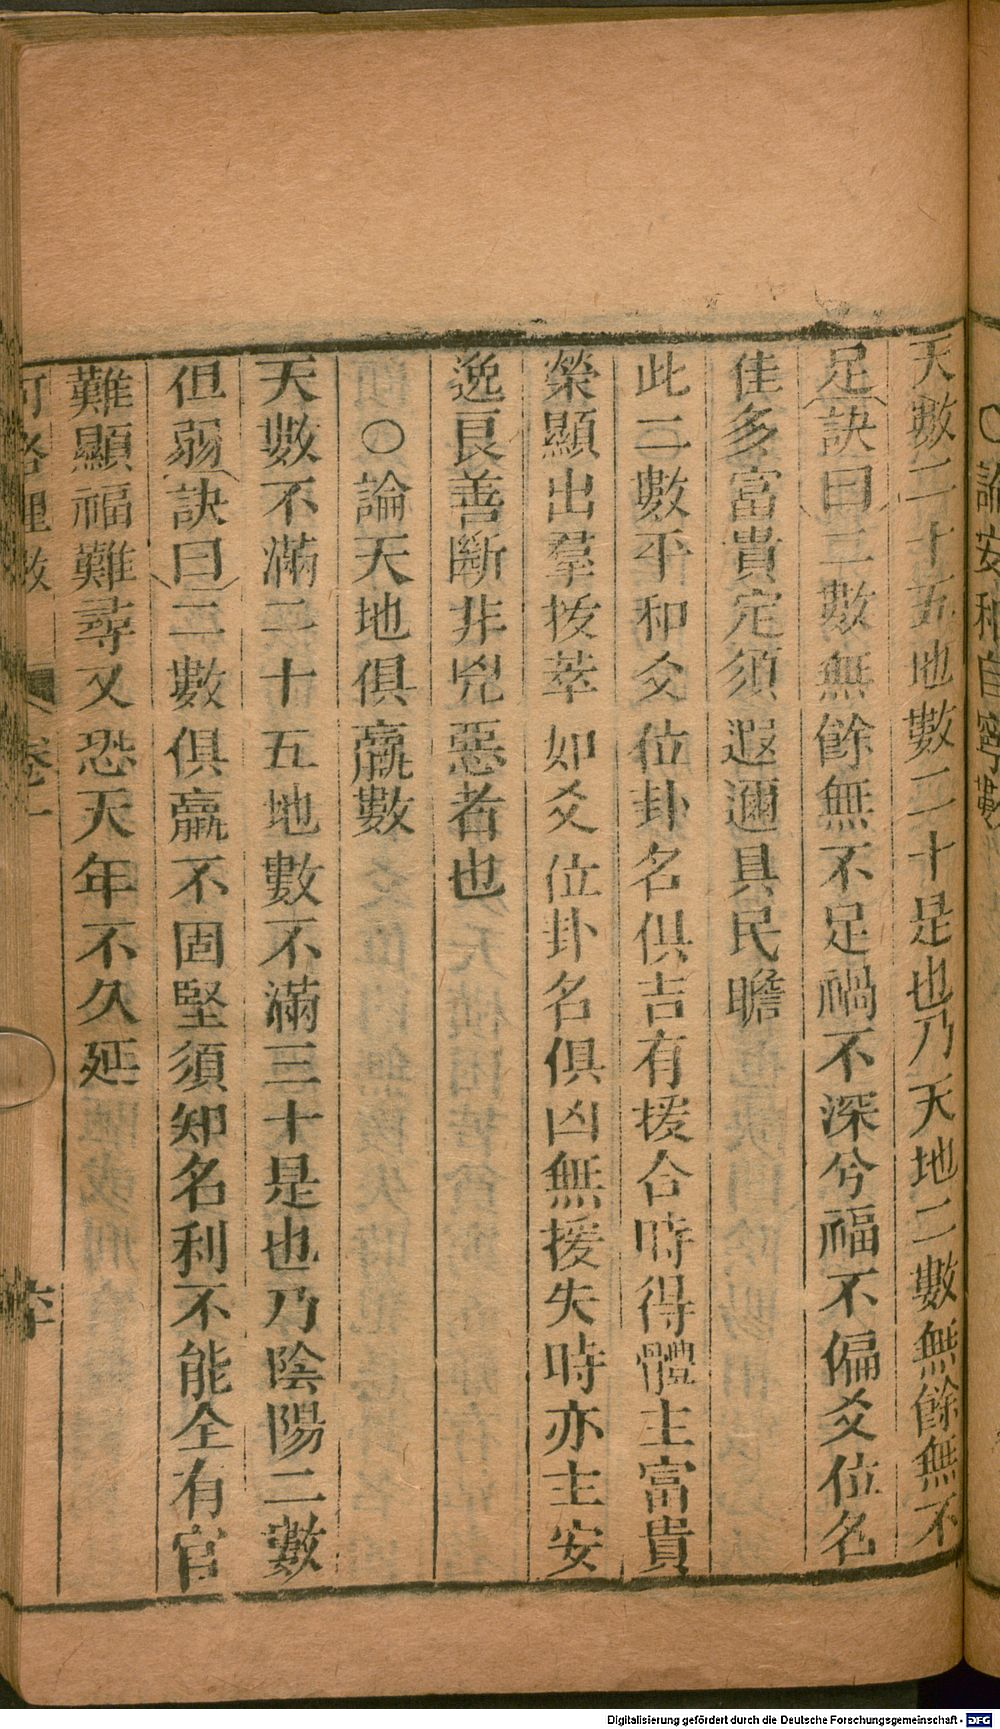 ○論安和自寧數
天數二十五地數二十是也乃天地二數無餘無不
足訣曰二數無餘無不足禍不深兮福不偏爻位名
佳多富貴定須遐邇具民瞻
此二數平和爻位卦名俱吉有援合時得體主富貴
榮顯出羣拔萃如爻位卦名俱凶無援失時亦主安
逸艮善斷非兇惡者也
○論天地俱羸數
天數不滿二十五地數不滿三十是也乃陰陽二數
但弱訣曰二數俱羸不固堅須知名利不能全有官
難顯福難尋又恐天年不久延
河洛理數
卷一
Digitalisierung gefördert durch die Deutsche Forschungsgemeinschaft - DFG